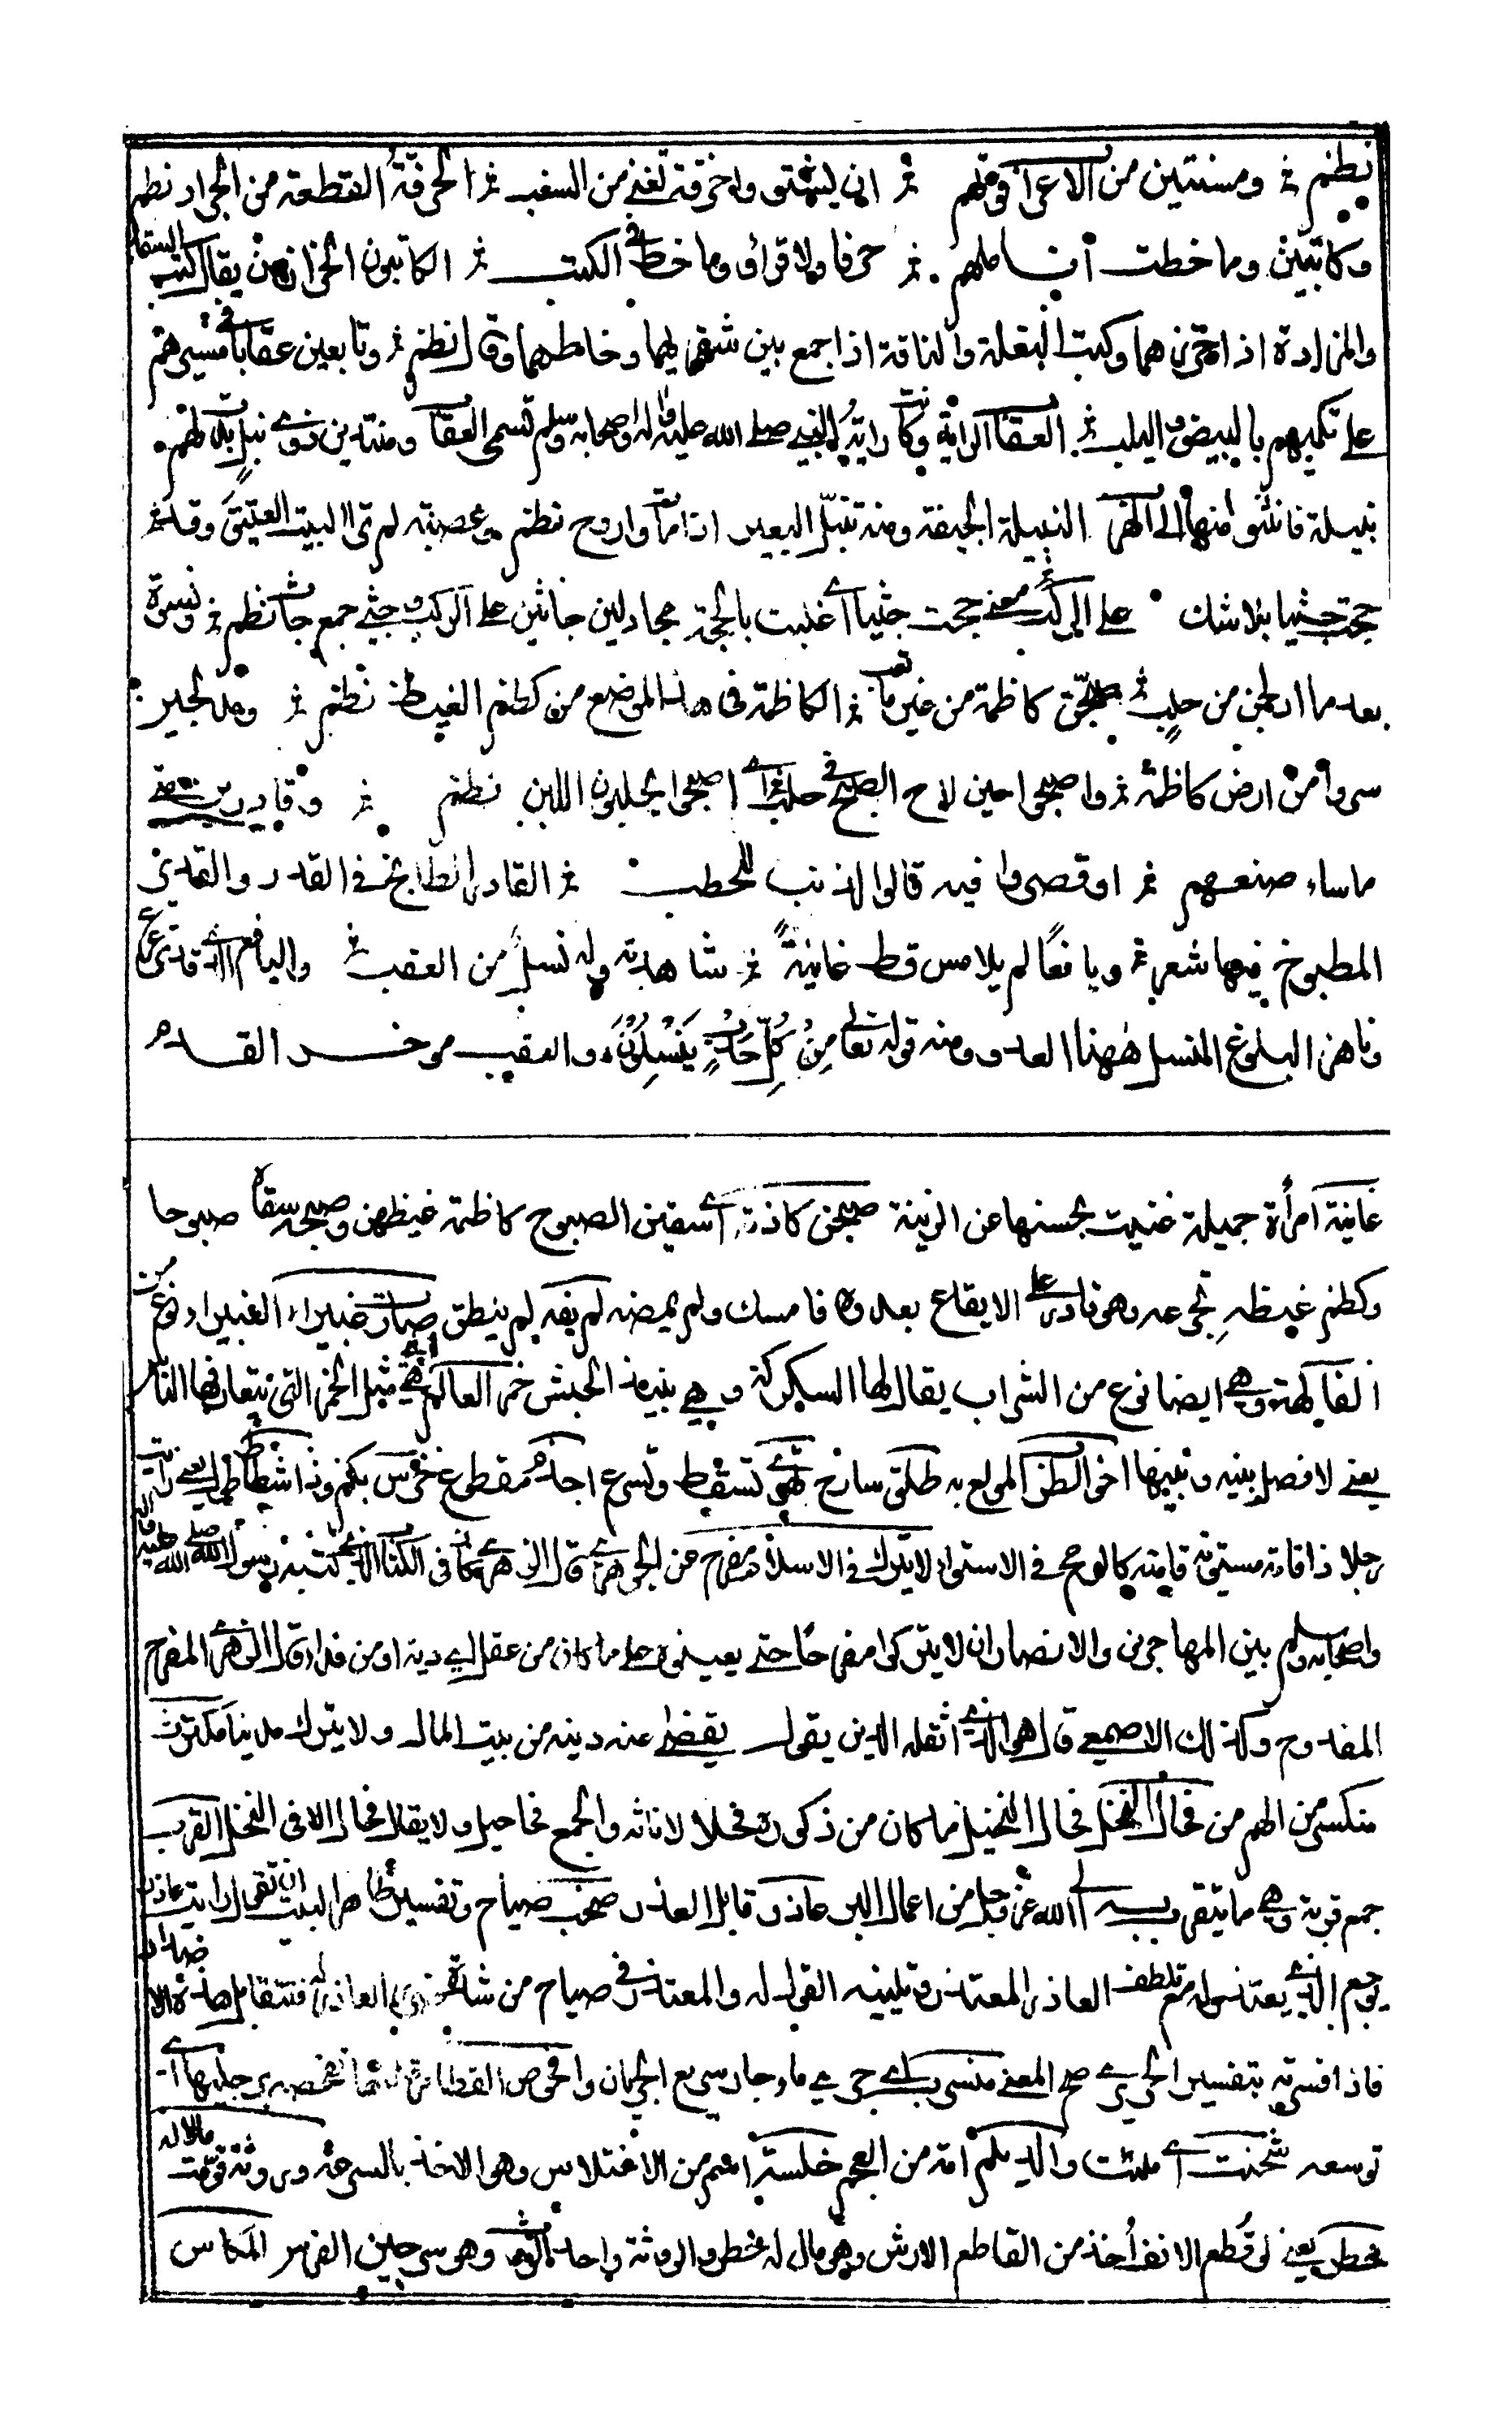 نظم ومسنتين من الاعراب قوتهم ان يشتووا خرقة تغني من السغب الخرقة القطعة من الجراد نظم
وكاتبين وما خطت اناملهم حرفا ولا قراوا وما خط في الكتب الكاتبون الخرازون يقال كتب السقاء
والمزادة اذا خرزهما وكتب البغلة والناقة اذا جمع بين شفريهما وخاطهما وقال نظم وتابعين عقابا في مسيرهم
على تكميهم بالبيض واليلب العقاب الراية وكانت راية النبي صلى الله عليه واله واصحابه وسلم تسمى العقاب ومنتدين ذوي نبل بدت لهم
نبيلة فانثنوا منها الى الهرب النبيلة الجيفة ومنه تنبل البعير اذا مات واروح نظم وعصبة لم تر البيت العتيق وقد
حجت جثيا بلا شك على الركب معنى حجت جثيا اي غلبت بالحجة مجادلين جاثين على الركب وجثي جمع جاث نظم ونسوة
بعد ما ادلجن من حلب صبحن كاظمة من غير تعب الكاظمة في هذا الموضع من كظم الغيظ نظم ومدلجين
سروا من ارض كاظمة واصبحوا حين لاح الصبح في حلب اي اصبحوا يحلبون اللبن نظم وقادرين متى
ما ساء صنعهم او قصروا فيه قالوا الذنب للحطب القادر الطابخ في القدر والقدير
المطبوخ فيها شعر ويافعا لم يلامس قط غانية شاهدته وله نسل من العقب واليافع الذي قد ترعرع
وناهز البلوغ النسل ههنا العدو ومنه قوله تعالى مِنْ كُلِّ حَدَبٍ يَنْسِلُونَ والعقب موخر القدم
غانية امرأة جميلة غنيت بحسنها عن الزينة صبحن كاظمة اي اسقين الصبوح كاظمة غيظهن وصبحه سقاه صبوحا
وكظم غيظه تجرعه وهو قادر على الايقاع بعدوه فامسك ولم يمضه لم يفه لم ينطق صارت غبيراء الغبيراء نوع من
الفاكهة وهي ايضا نوع من الشراب يقال لها السكركة وهي نبيذ الحبش خمر العالم اي هي مثل الخمر التي يتعارفها الناس
يعني لا فصل بينه وبينها اخو الطز المولع به طلقي سارح تهي تسقط وتسرع اجذم مقطوع خرس بكم وذا شطاط يعني رايت
رجلا ذا قامة مستوية قامته كالرمح في الاستواء لا يترك في الاسلام مفرح عن الجوهري قال الزهري كان في الكتاب الذي كتبه رسول الله صلى الله عليه واله
واصحابه وسلم بين المهاجرين والانصار ان لا يتركوا مفرحا حتى يعينوه على ما كان من عقل اي دية او من فداء قال الزهري المفرح
المفدوح وكذلك الاصمعي قال هو الذي اثقله الدين يقول يقضى عنه دينه من بيت المال ولا يترك مدينا مكترث
منكسر من الهم من فحال النخل فحال النخيل ما كان من ذكوره فحلا لاناثه والجمع فحاحيل ولا يقال فحال الا في النخل القرب
جمع قربة وهي ما يتقرب به الى الله عز وجل من اعمال البر عاذر قابل العذر صخب صياح وتفسير ظاهر البيت ان تقول رايت عاذرا
يوجع الذي يعتذر له مع تلطف العاذر المعتذر وتليينه القول له والمعتذر في صياح من شاة العاذر له فتتقابل هذه الاضداد
فاذا فسرته بتفسير الحريري صح المعنى منسرب اي جري ماء جار سريع الجريان وافحوص القطا تفحصه برجليها اي
توسعه شحنت اي ملئت والديلم امة من العجم خلسة اعم من الاختلاس وهو الاخذ بالسرعة وروثة قومت ماله
خطر يعني لو قطع الانف اخذ من القاطع الارش وهو مال له خطر والروثة واحد الروث وهو سرجين الفرس المكاس